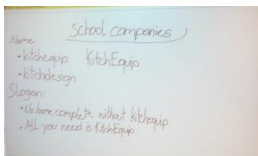 school companies
Name:
• kitchequip KitchEquip
• kitchdesign
Slogan:
• No home complete without kitchequip
• All you need is KitchEquip